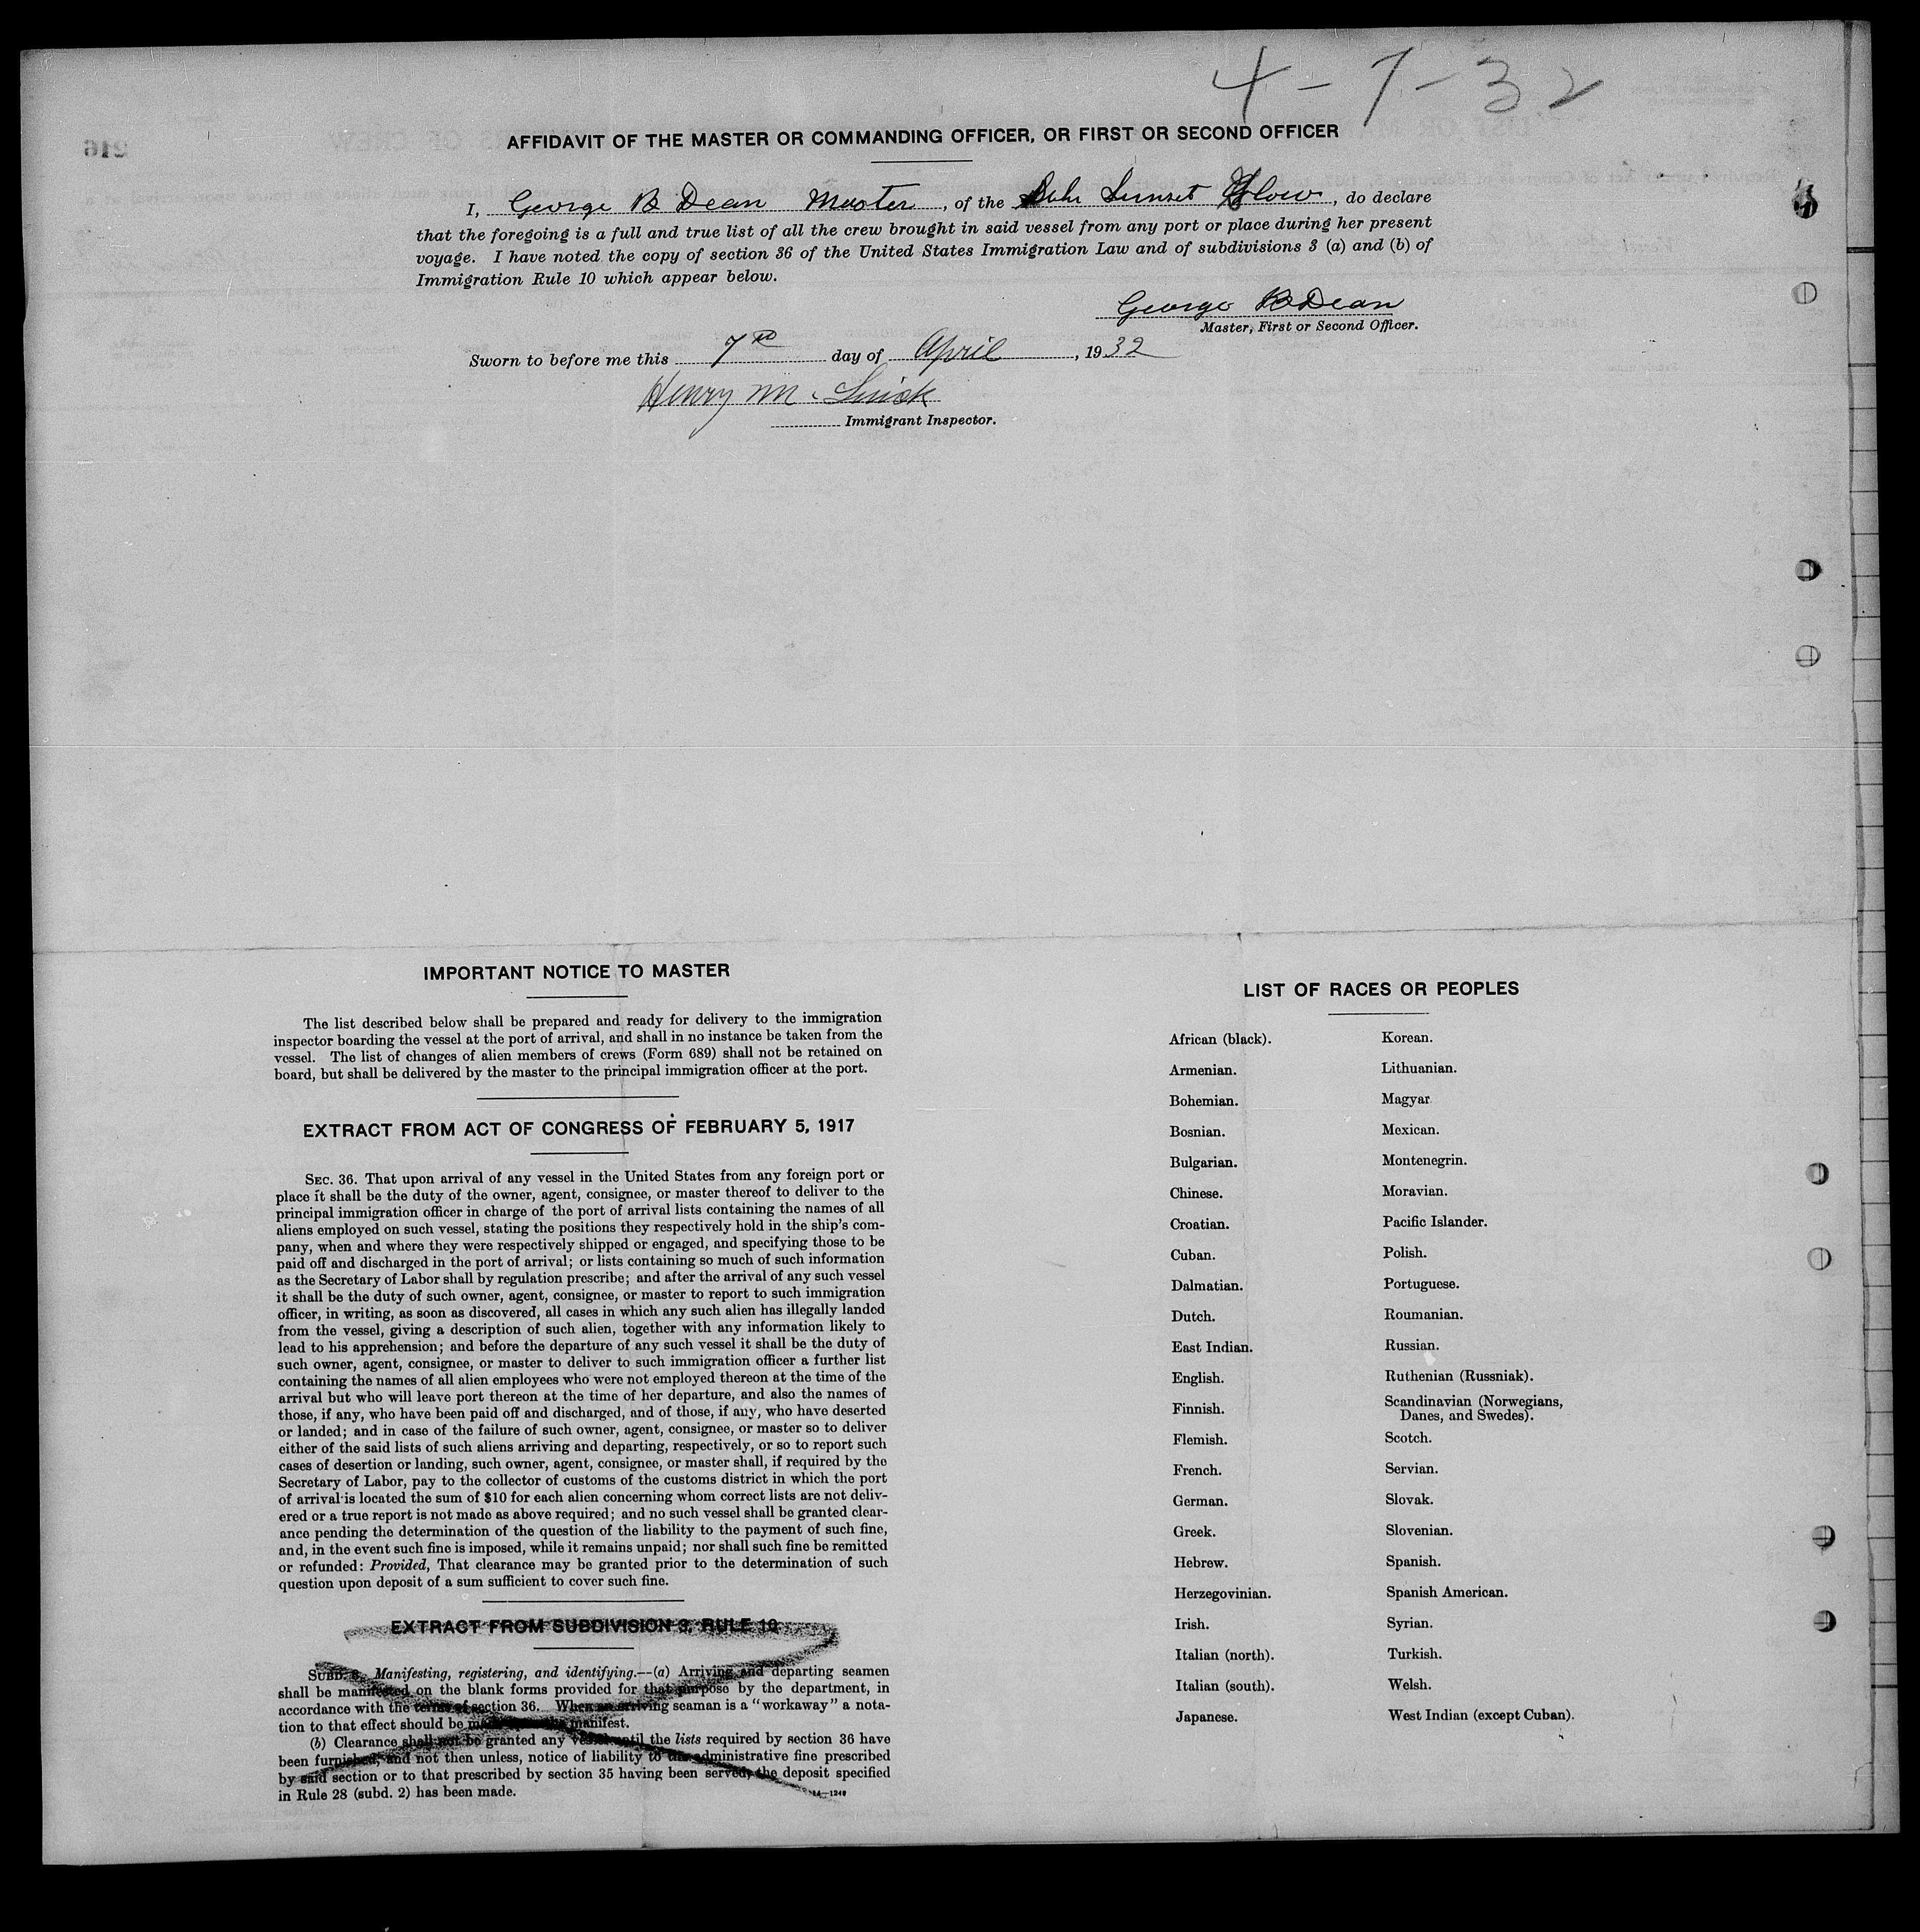 4-7-32
AFFIDAVIT OF THE MASTER OR COMMANDING OFFICER, OR FIRST OR SECOND OFFICER
I, George B Dean Master, of the Schr Sunset Glow, do declare
that the foregoing is a full and true list of all the crew brought in said vessel from any port or place during her present
voyage. I have noted the copy of section 36 of the United States Immigration Law and of subdivisions 3 (a) and (b) of
Immigration Rule 10 which appear below.
George B Dean
Master, First or Second Officer.
Sworn to before me this 7th day of April, 1932
Henry M.
Immigrant Inspector.
IMPORTANT NOTICE TO MASTER
The list described below shall be prepared and ready for delivery to the immigration
inspector boarding the vessel at the port of arrival, and shall in no instance be taken from the
vessel. The list of changes of alien members of crews (Form 689) shall not be retained on
board, but shall be delivered by the master to the principal immigration officer at the port.
EXTRACT FROM ACT OF CONGRESS OF FEBRUARY 5, 1917
SEC. 36. That upon arrival of any vessel in the United States from any foreign port or
place it shall be the duty of the owner, agent, consignee, or master thereof to deliver to the
principal immigration officer in charge of the port of arrival lists containing the names of all
aliens employed on such vessel, stating the positions they respectively hold in the ship's com-
pany, when and where they were respectively shipped or engaged, and specifying those to be
paid off and discharged in the port of arrival; or lists containing so much of such information
as the Secretary of Labor shall by regulation prescribe; and after the arrival of any such vessel
it shall be the duty of such owner, agent, consignee, or master to report to such immigration
officer, in writing, as soon as discovered, all cases in which any such alien has illegally landed
from the vessel, giving a description of such alien, together with any information likely to
lead to his apprehension; and before the departure of any such vessel it shall be the duty of
such owner, agent, consignee, or master to deliver to such immigration officer a further list
containing the names of all alien employees who were not employed thereon at the time of the
arrival but who will leave port thereon at the time of her departure, and also the names of
those, if any, who have been paid off and discharged, and of those, if any, who have deserted
or landed; and in case of the failure of such owner, agent, consignee, or master so to deliver
either of the said lists of such aliens arriving and departing, respectively, or so to report such
cases of desertion or landing, such owner, agent, consignee, or master shall, if required by the
Secretary of Labor, pay to the collector of customs of the customs district in which the port
of arrival is located the sum of $10 for each alien concerning whom correct lists are not deliv-
ered or a true report is not made as above required; and no such vessel shall be granted clear-
ance pending the determination of the question of the liability to the payment of such fine,
and, in the event such fine is imposed, while it remains unpaid; nor shall such fine be remitted
or refunded: Provided, That clearance may be granted prior to the determination of such
question upon deposit of a sum sufficient to cover such fine.
EXTRACT FROM SUBDIVISION 3, RULE 10
SUBD. 3. Manifesting, registering, and identifying.—(a) Arriving and departing seamen
shall be manifested on the blank forms provided for that purpose by the department, in
accordance with the terms of section 36. When an arriving seaman is a "workaway" a nota-
tion to that effect should be made manifest.
(b) Clearance shall not be granted any vessel until the lists required by section 36 have
been furnished, and not then unless, notice of liability to the administrative fine prescribed
by said section or to that prescribed by section 35 having been served, the deposit specified
in Rule 28 (subd. 2) has been made.
LIST OF RACES OR PEOPLES
African (black).
Armenian.
Bohemian.
Bosnian.
Bulgarian.
Chinese.
Croatian.
Cuban.
Dalmatian.
Dutch.
East Indian.
English.
Finnish.
Flemish.
French.
German.
Greek.
Hebrew.
Herzegovinian.
Irish.
Italian (north).
Italian (south).
Japanese.
Korean.
Lithuanian.
Magyar
Mexican.
Montenegrin.
Moravian.
Pacific Islander.
Polish.
Portuguese.
Roumanian.
Russian.
Ruthenian (Russniak).
Scandinavian (Norwegians,
Danes, and Swedes).
Scotch.
Servian.
Slovak.
Slovenian.
Spanish.
Spanish American.
Syrian.
Turkish.
Welsh.
West Indian (except Cuban).